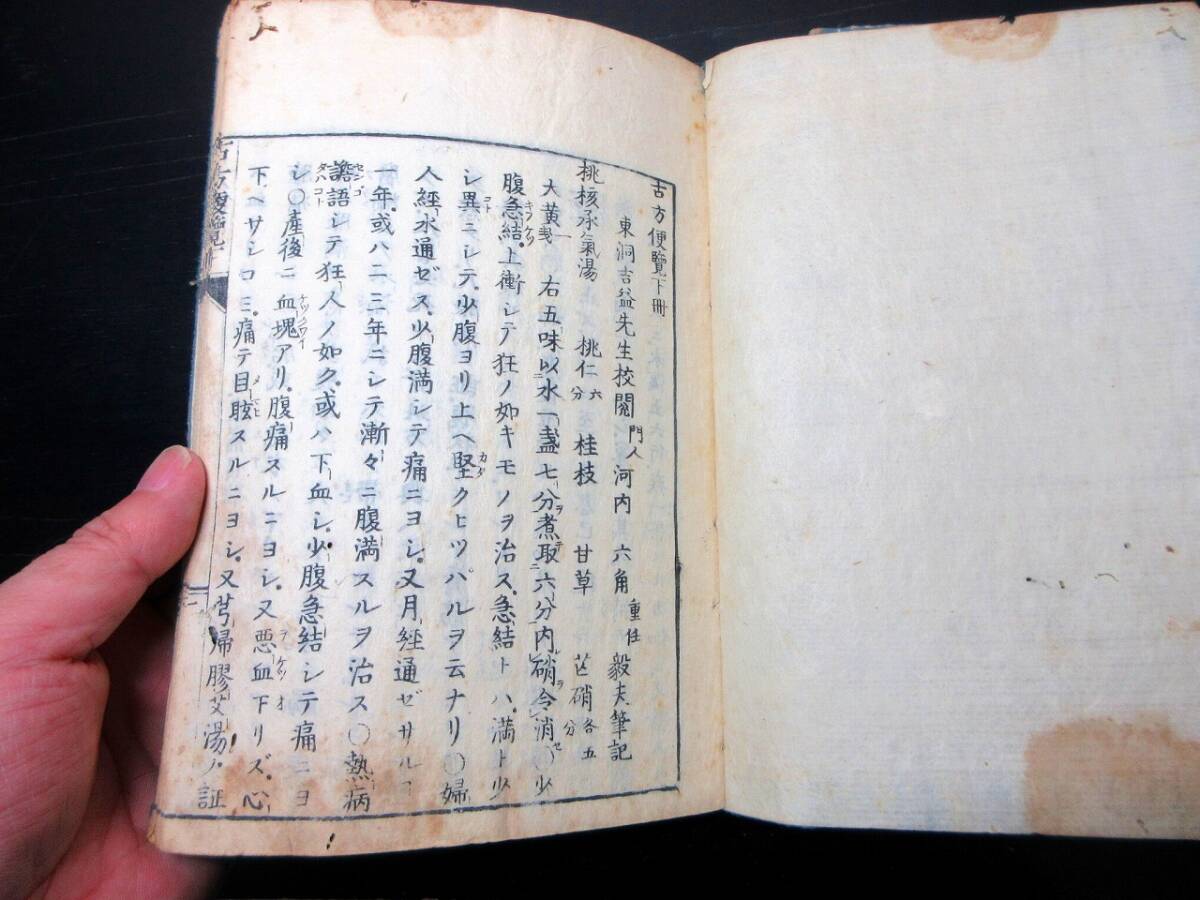 古方便覽下冊
東洞吉益先生校閱 門人 河内 六角 重任 毅夫筆記
桃核承氣湯 桃仁 六分 桂枝 甘草 芒硝 各五分
大黃 一戔 右五味以水一盞七分煮取六分内硝令消○少
腹急結上衝シテ狂ノ如キモノヲ治ス急結トハ満ト少
シ異ニシテ少腹ヨリ上ヘ堅クヒツパルヲ云ナリ○婦
人經水通ゼス少腹満シテ痛ニヨシ又月經通ゼサルヿ
一年或ハ二三年ニシテ漸々ニ腹満スルヲ治ス○熱病
譫語シテ狂人ノ如ク或ハ下血シ少腹急結シテ痛ニヨ
シ○産後ニ血塊アリ腹痛スルニヨシ又悪血下リズ心
下ヘサシコミ痛テ目眩スルニヨシ又芎歸膠艾湯ノ証
古方便覽下